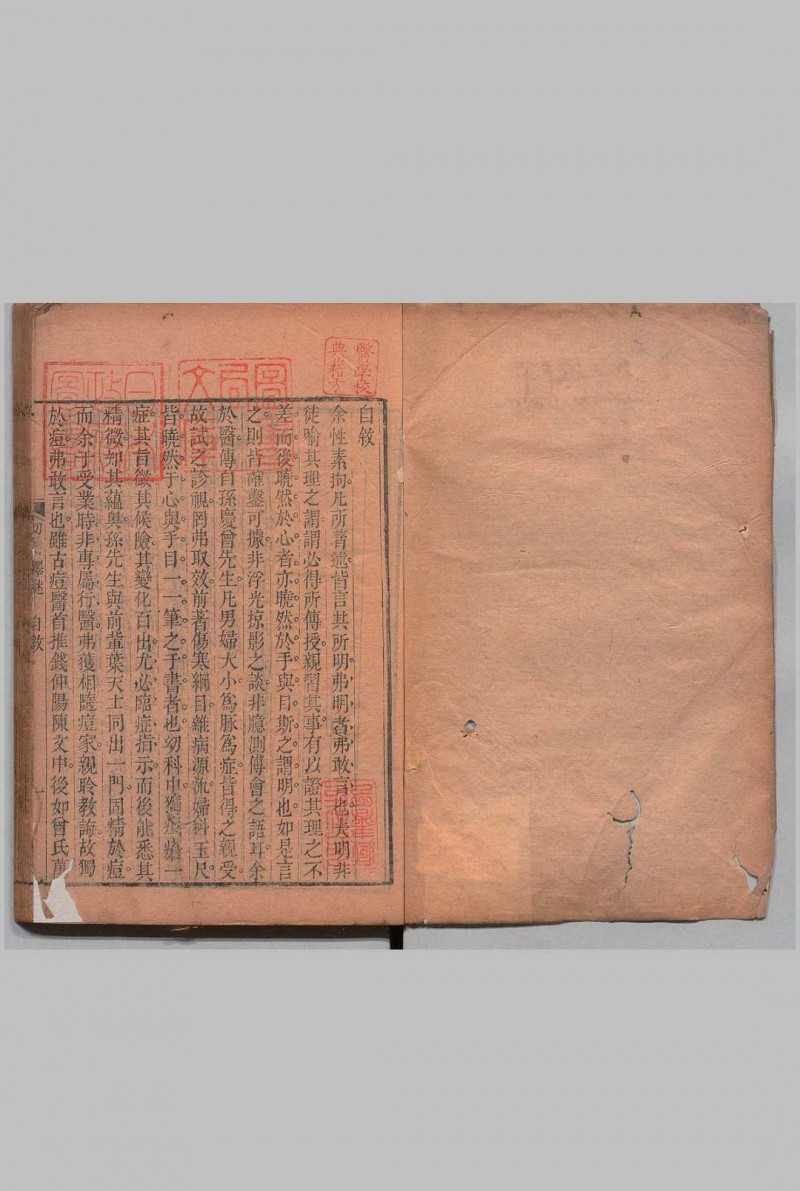 自敘
余性素拘凡所著述皆言其所明弗明者弗敢言也夫明非
徒喻其理之謂謂必得所傳授親習其事有以證其理之不
差而後曉然於心者亦曉然於手與目斯之謂明也如是言
之則皆確鑿可據非浮光掠影之談非臆測傅會之語耳余
於醫傳自孫慶曾先生凡男婦大小為脉為症皆得之親受
故試之診視罔弗取效前著傷寒綱目雜病源流婦科玉尺
皆曉然于心與手目一一筆之于書者也幼科中獨痘瘡一
症其旨微其候險其變化百出尤必臨症指示而後能悉其
精微如其蘊奧孫先生與前輩葉天士同出一門固精於痘
而余于受業時非專屬行醫弗獲相隨痘家親聆教誨故獨
於痘弗敢言也雖古痘醫首推錢仲陽陳文中後如曾氏萬
自敘
一
醫學校
典權方